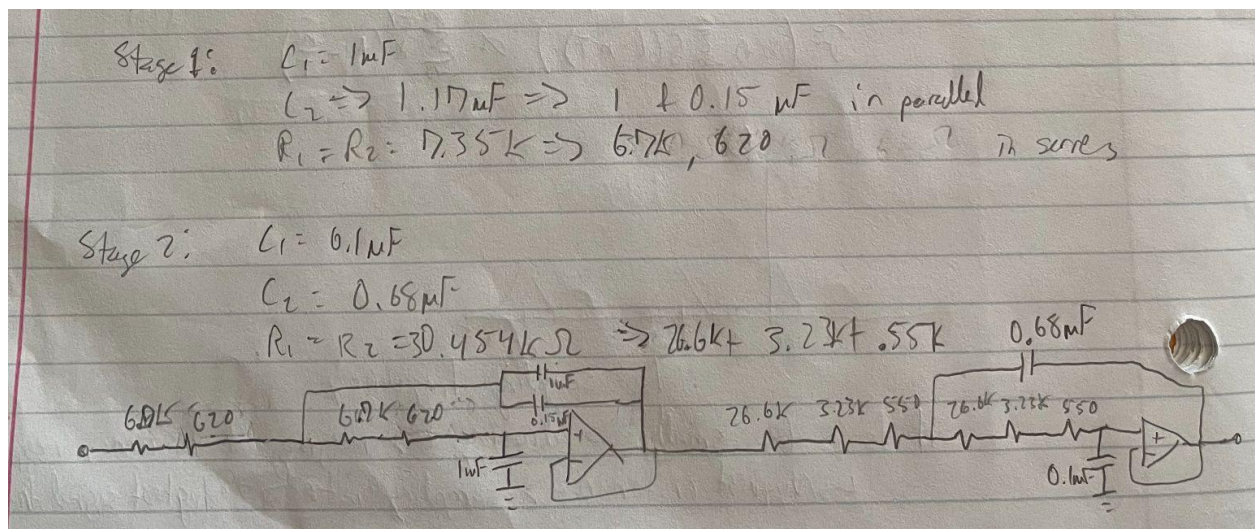 Stage 1: C₁ = 1μF
C₂ => 1.17μF => 1 + 0.15 μF in parallel
R₁ = R₂ = 7.35K => 6.7K, 620 in series
Stage 2: C₁ = 0.1μF
C₂ = 0.68μF
R₁ = R₂ = 30.454KΩ => 26.6K + 3.23K + .55K
0.68μF
1μF
0.15μF
620
620
26.6K 3.23K 550 26.6K 3.23K 550
1μF
+
-
+
-
0.1μF